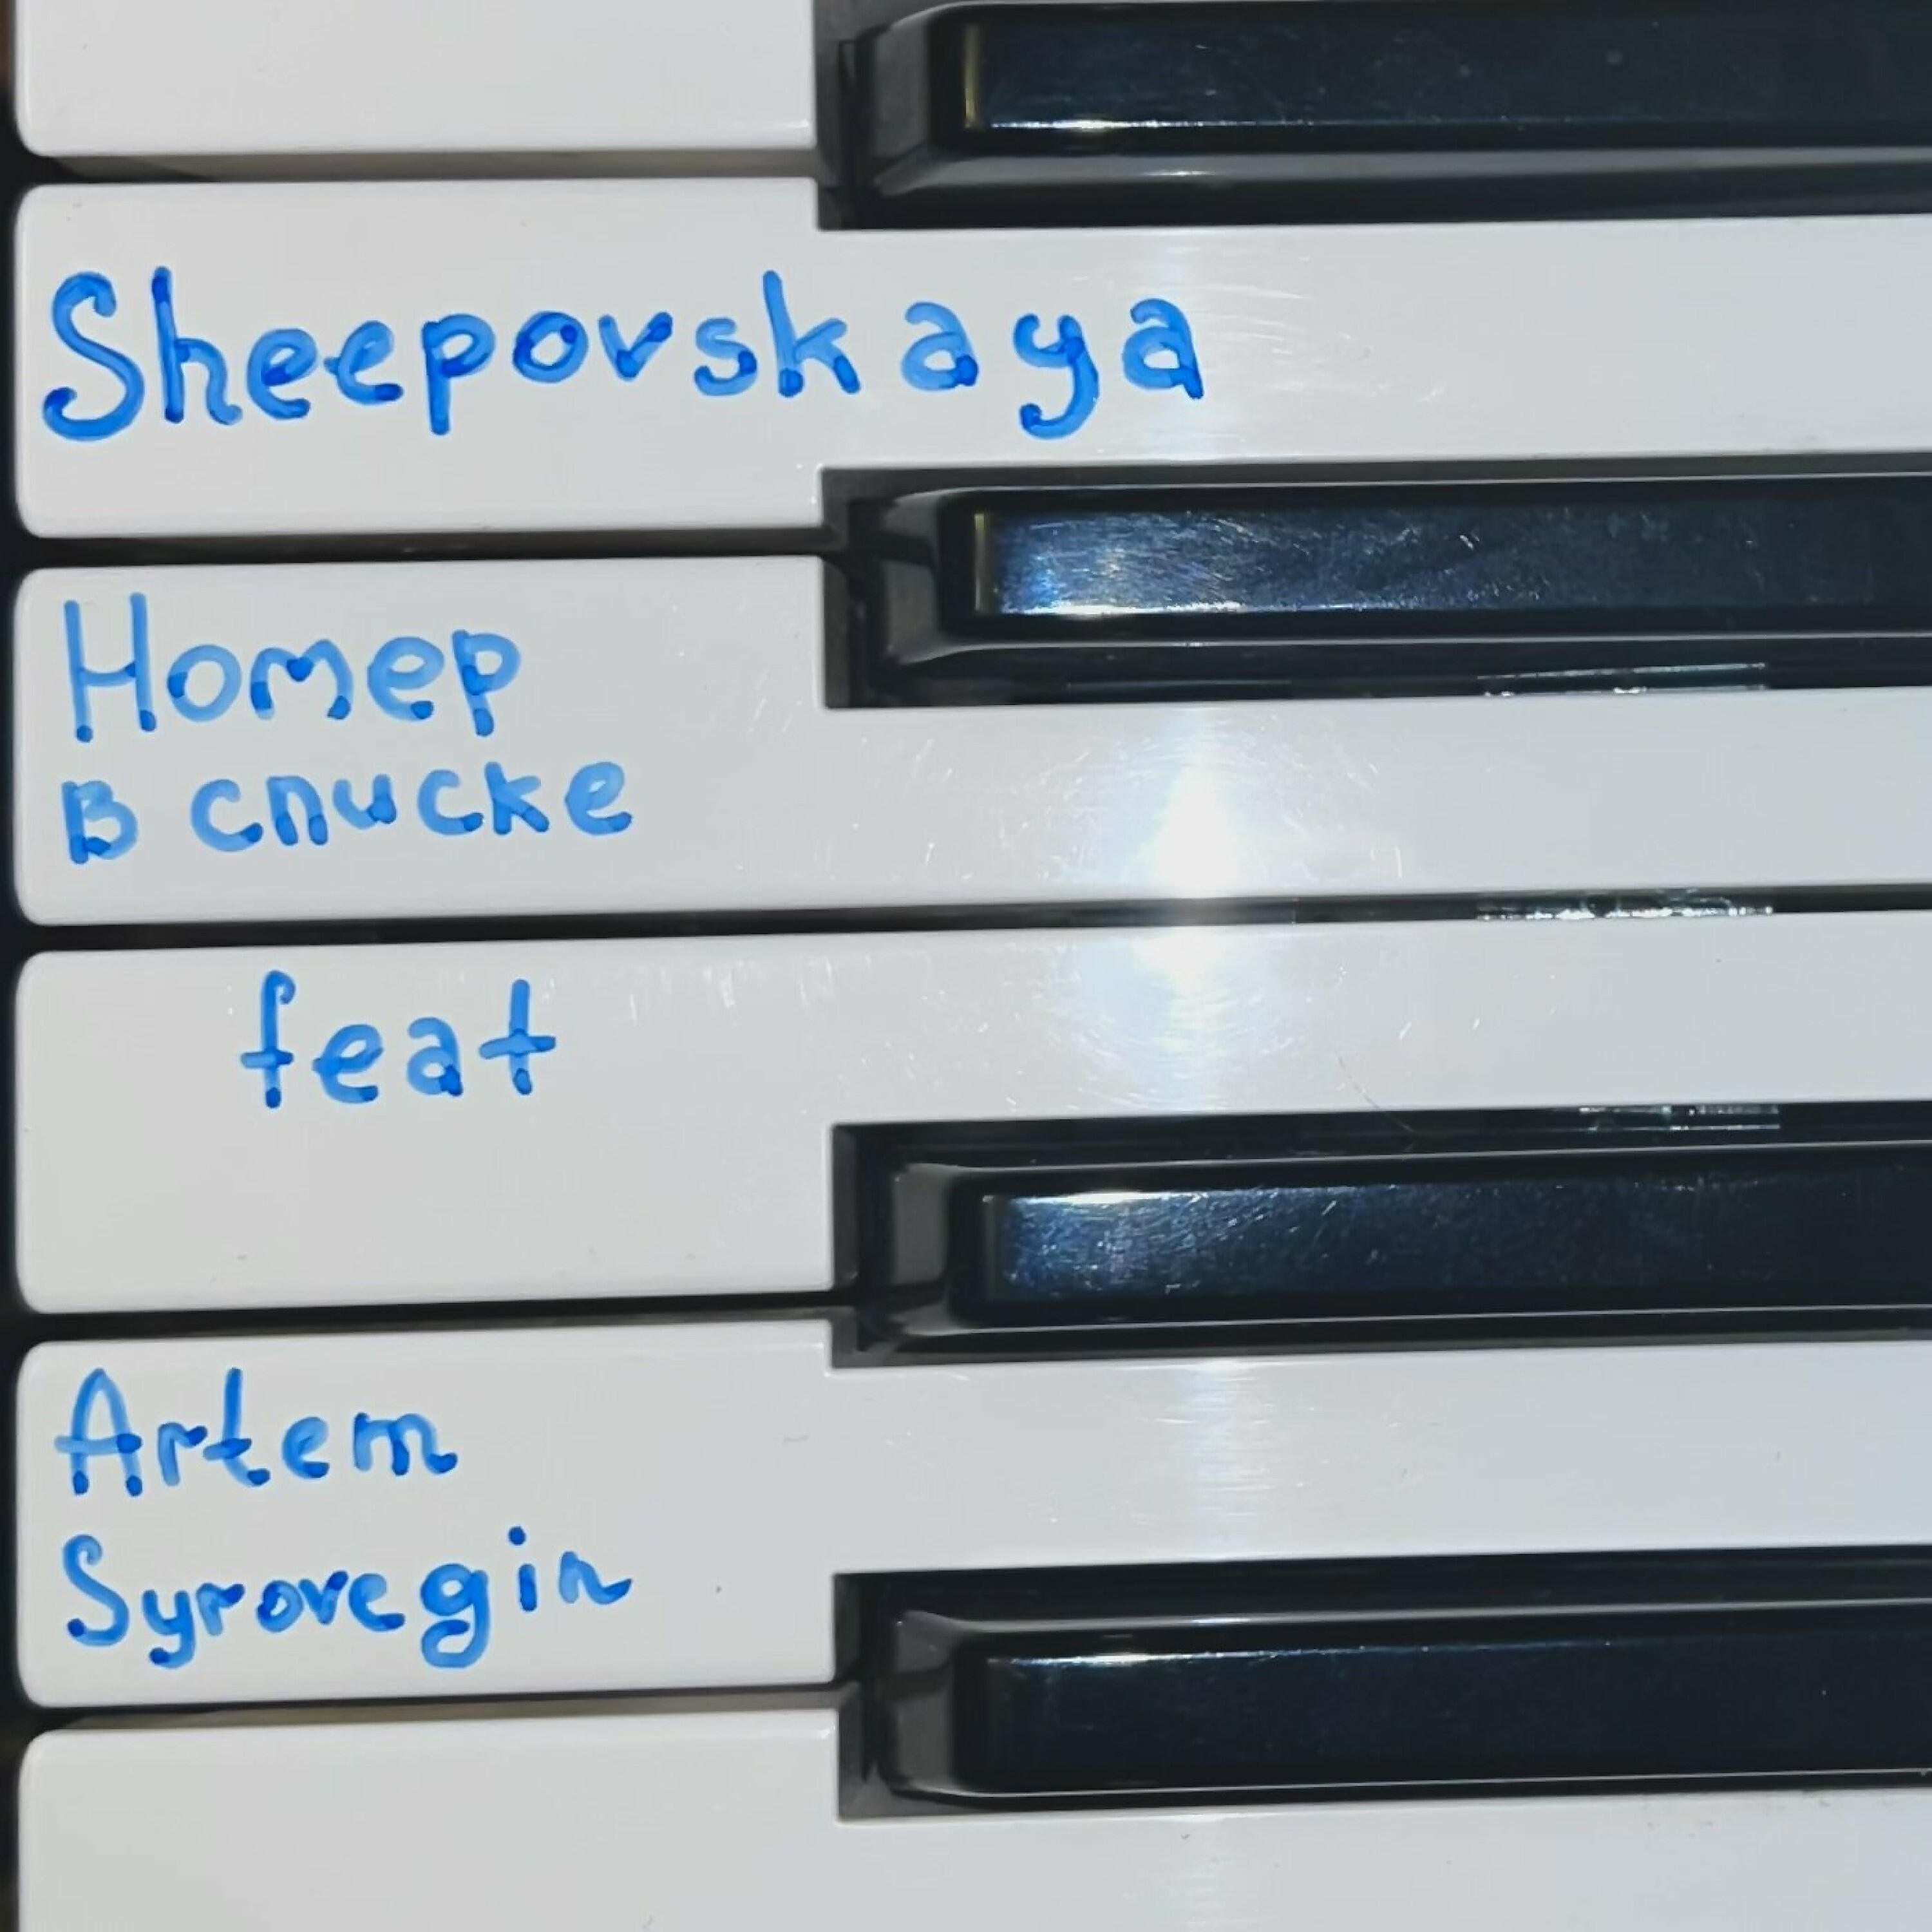 Sheepovskaya
Номер
в списке
feat
Artem
Syrovegin